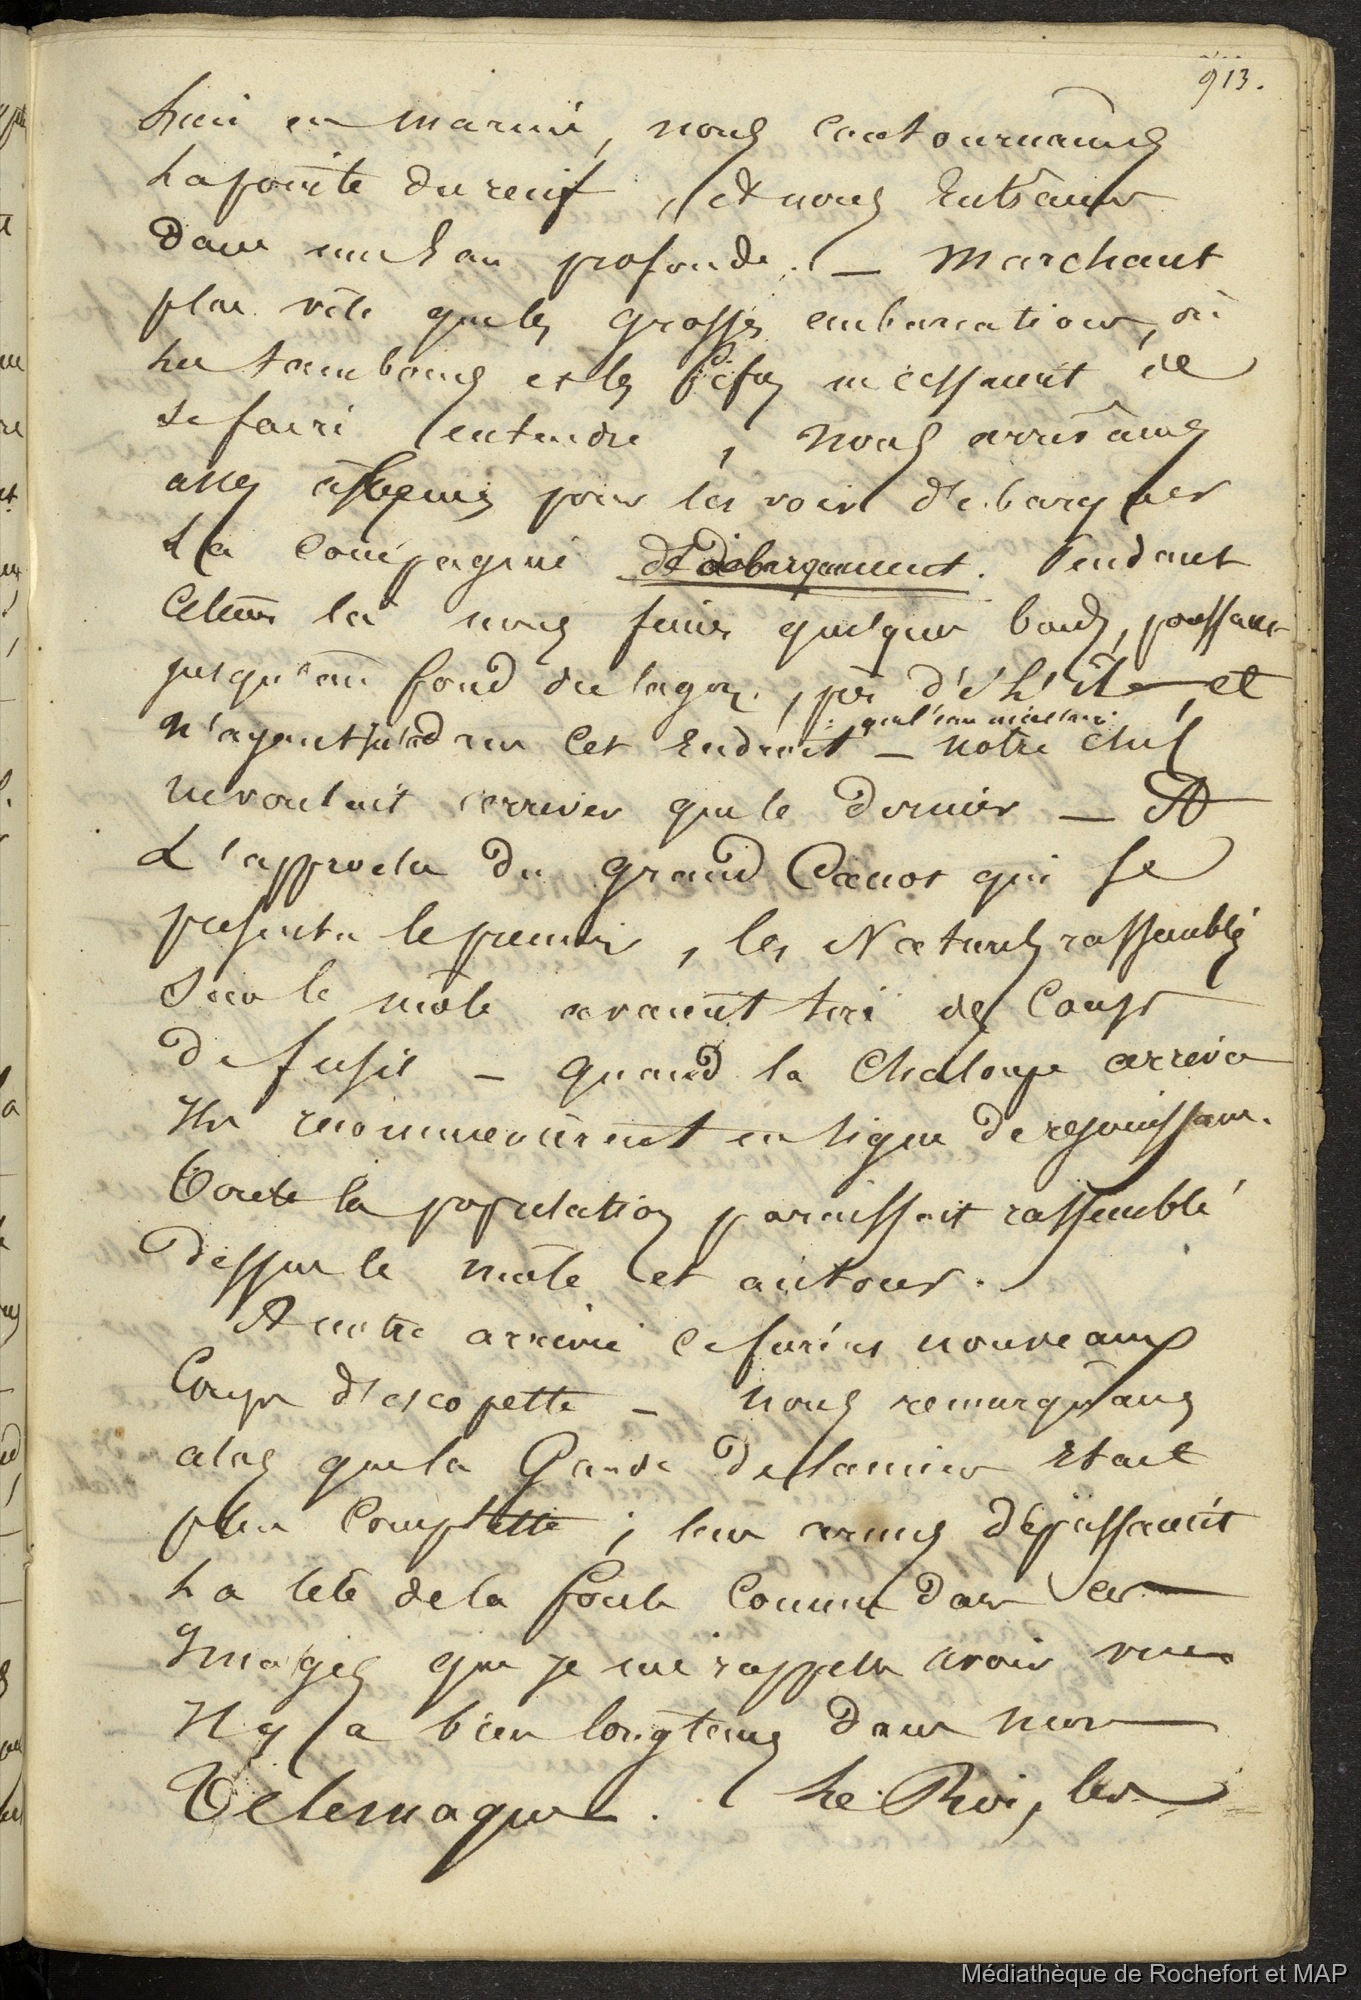 913.
bien en marine, nous contournames
La pointe du recif, et nous Entrames
Dans une Eau profonde. — Marchant
plus vite que les grosses embarcations, où
les tambours et les fifres ne cessaient de
se faire entendre, nous arrivâmes
assez à temps pour les voir débarquer
La Compagnie de débarquement. Pendant
ce tems là nous fimes quelques bords, poussant
jusqu'au fond du lagon, près de l'île et
que l'eau
n'ayant dans cet Endroit — notre chef
ne voulait arriver que le dernier — A
L'approche du grand Canot qui se
présenta le premier, les Naturels rassemblés
sur le môle avaient tiré des Coups
De fusil — quand la Chaloupe arriva
Ils recommencèrent en signe de rejouissance.
Toute la population paraissait rassemblé
Dessus le môle et autour.
A notre arrivée ce furent nouveaux
Coups d'escopette — nous remarquâmes
alors que la Garde De lanciers Etait
plus Complette ; leurs armes dépassaient
La tête de la foule Comme dans ces
Images que je me rappelle avoir vues
Il y a bien longtems Dans mon
Télémaque. Le Roi, les
Médiathèque de Rochefort et MAP